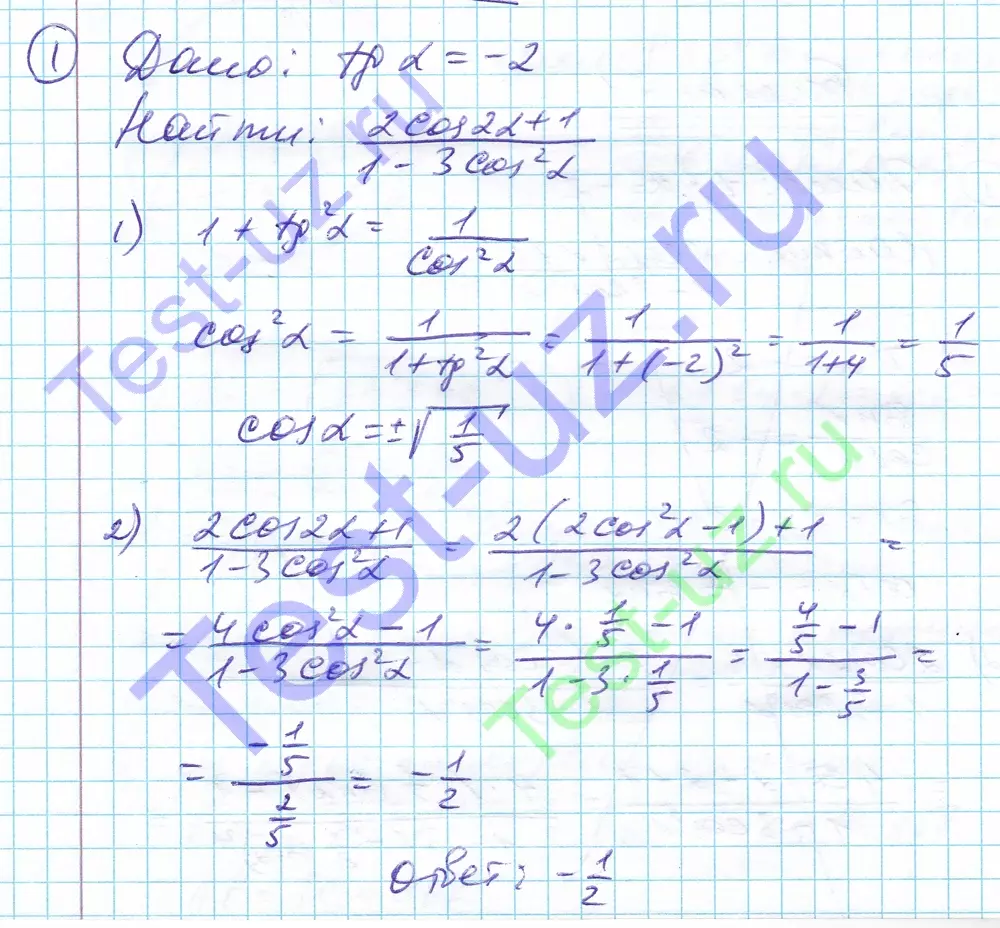 ① Дано: tg α = -2
Найти: (2cos2α+1)/(1-3cos²α)
1) 1 + tg²α = 1/cos²α
cos²α = 1/(1+tg²α) = 1/(1+(-2)²) = 1/(1+4) = 1/5
cosα = ±√(1/5)
2) (2cos2α+1)/(1-3cos²α) = (2(2cos²α-1)+1)/(1-3cos²α) =
= (4cos²α-1)/(1-3cos²α) = (4·1/5 -1)/(1-3·1/5) = (4/5 -1)/(1-3/5) =
= (-1/5)/(2/5) = -1/2
Ответ: -1/2
Test-uz.ru
Test-uz.ru
Test-uz.ru